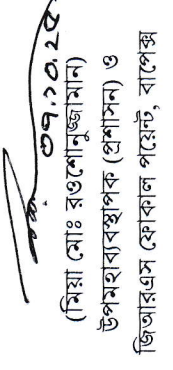 ০৭.১০.২৫
(মিয়া মোঃ রওশোনুজ্জামান)
উপমহাব্যবস্থাপক (প্রশাসন) ও
জিআরএস ফোকাল পয়েন্ট, বাপেক্স